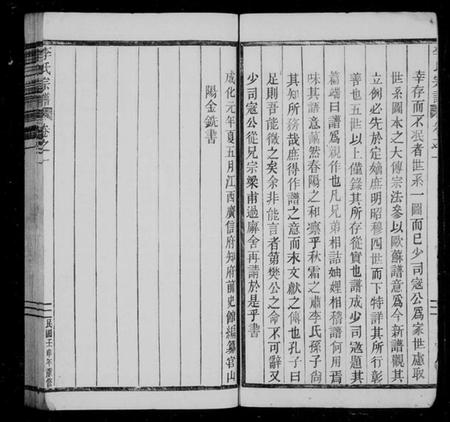 李氏宗譜
卷之一
幸存而不泯者世系一圖而已少司寇公爲家世慮取
世系圖本之大傳宗法參以歐蘇譜意爲今新譜觀其
立例必先於定嫡庶明昭穆四世而下特詳其所行彰
善也五世以上僅錄其所存從實也譜成少司寇題其
篇端曰譜爲親作也凡兄弟相詬妯娌相稽譜何用焉
味其語意藹然春陽之和凛乎秋霜之肅李氏孫子尚
其知所務哉庶得作譜之意而末文獻之傳也孔子曰
足則吾能徵之矣余非能言者第樊公之命不可辭又
少司寇公從兄宗梁甫過廨舍再請於是乎書
成化元年夏五月江西廣信府知府前史館編纂官山
陽金銑書
李氏宗譜
卷之一
民國壬申年重修